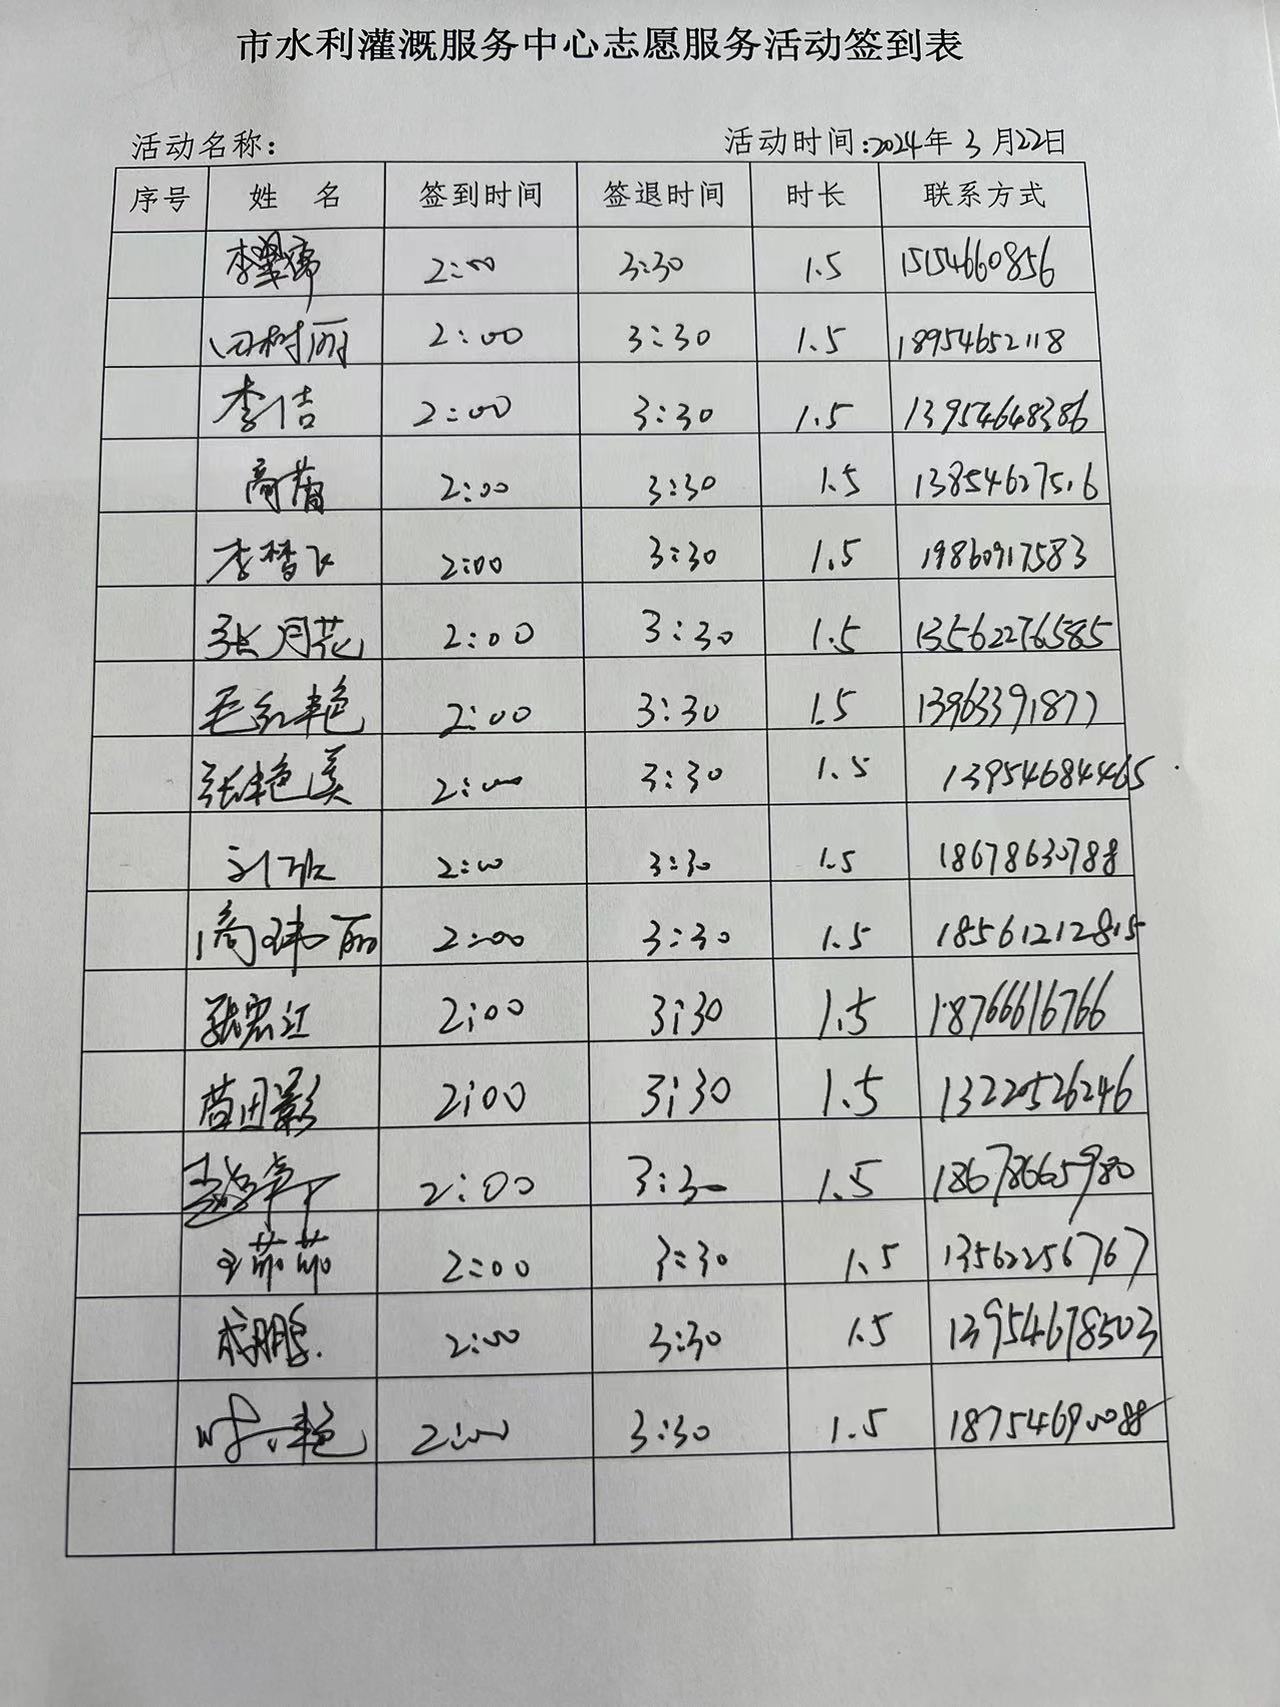 市水利灌溉服务中心志愿服务活动签到表
活动名称: 活动时间:2024年 3 月22日
序号 姓 名 签到时间 签退时间 时长 联系方式
2:00 3:30 1.5 15154660856
田树丽 2:00 3:30 1.5 18954652118
李洁 2:00 3:30 1.5 13954648386
商蕾 2:00 3:30 1.5 13854627516
李梦飞 2:00 3:30 1.5 19860917583
张月花 2:00 3:30 1.5 13562276585
毛红艳 2:00 3:30 1.5 13963391877
张艳溪 2:00 3:30 1.5 13954684465
2:00 3:30 1.5 18678630788
商玮丽 2:00 3:30 1.5 18561212815
张宏江 2:00 3:30 1.5 18766616766
苗田影 2:00 3:30 1.5 13220526246
2:00 3:30 1.5 18678665980
王茹茹 2:00 3:30 1.5 13562256767
李鹏 2:00 3:30 1.5 13954678503
2:00 3:30 1.5 18754690088